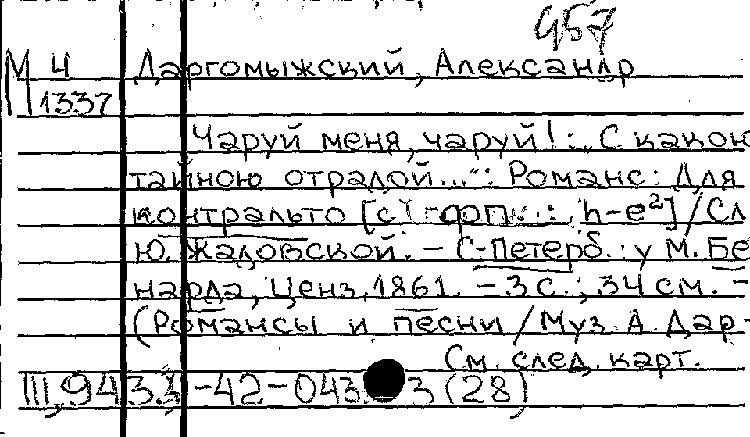 957
М 4 Даргомыжский, Александр
1337
Чаруй меня, чаруй!: „С какою
тайною отрадой...": Романс: Для
контральто [с фп.: h-e²] / Сл
Ю. Жадовской. - С-Петерб.: у М. Бе
нарда, Ценз. 1861. - 3 с.; 34 см. -
(Романсы и песни / Муз. А. Дар-
См. след. карт.